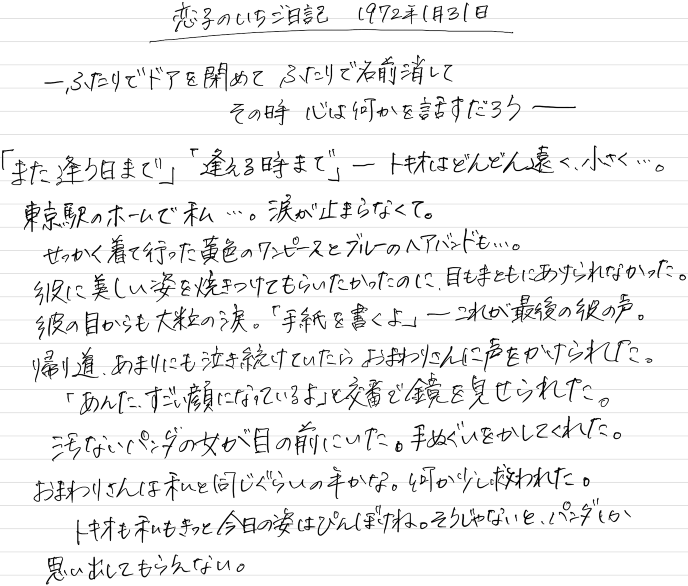 恋子のいちご日記 1972年1月31日
―ふたりでドアを閉めて ふたりで名前消して
その時 心は何かを話すだろう――
「また逢う日まで」「逢える時まで」― トキオはどんどん遠く、小さく…。
東京駅のホームで私…。涙が止まらなくて。
せっかく着て行った黄色のワンピースとブルーのヘアバンドも…。
彼に美しい姿を焼きつけてもらいたかったのに、目もまともにあけられなかった。
彼の目からも大粒の涙。「手紙を書くよ」― これが最後の彼の声。
帰り道、あまりにも泣き続けていたらおまわりさんに声をかけられた。
「あんた、すごい顔になっているよ」と交番で鏡を見せられた。
汚ないパンダの女が目の前にいた。手ぬぐいをかしてくれた。
おまわりさんは私と同じぐらいの年かな。何か少し救われた。
トキオも私もきっと今日の姿はぴんぼけね。そうじゃないと、パンダしか
思い出してもらえない。